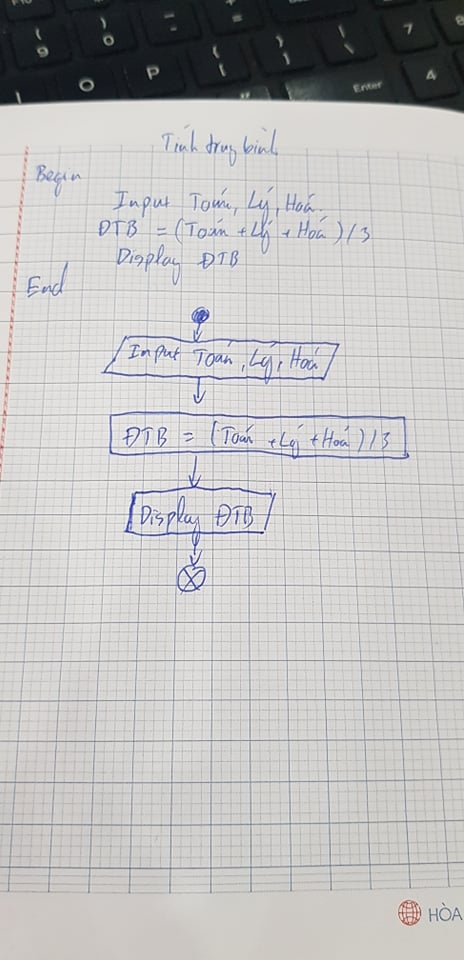 P
Enter
7
4
9
0
O
Tính trung bình
Begin
Input Toán, Lý, Hoá.
ĐTB = (Toán + Lý + Hoá) / 3
Display ĐTB
End
Input Toán, Lý, Hoá
ĐTB = (Toán + Lý + Hoá) / 3
Display ĐTB
HÒA